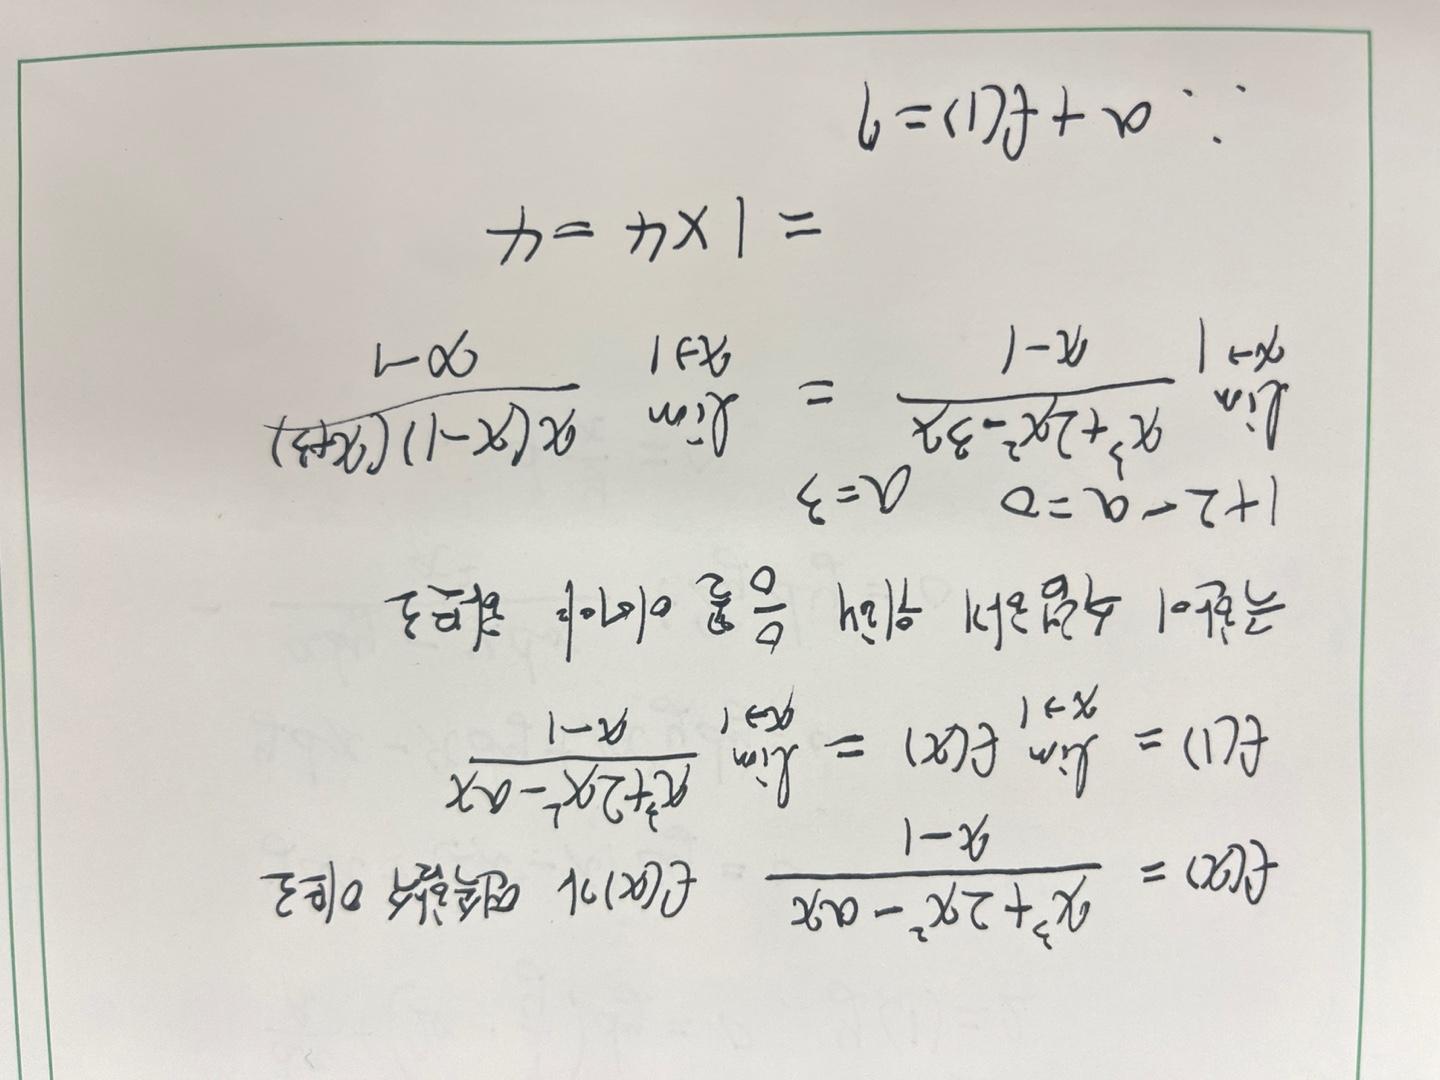 f(x) = (x³+2x²-ax)/(x-1) f(x)가 연속함수 이므로
f(1) = lim_{x→1} f(x) = lim_{x→1} (x³+2x²-ax)/(x-1)
극한이 수렴하기 위해 0/0꼴 이어야 하므로
1+2-a=0 a=3
lim_{x→1} (x³+2x²-3x)/(x-1) = lim_{x→1} x(x-1)(x+3)/(x-1)
= 1×4 = 4
∴ a+f(1)=7